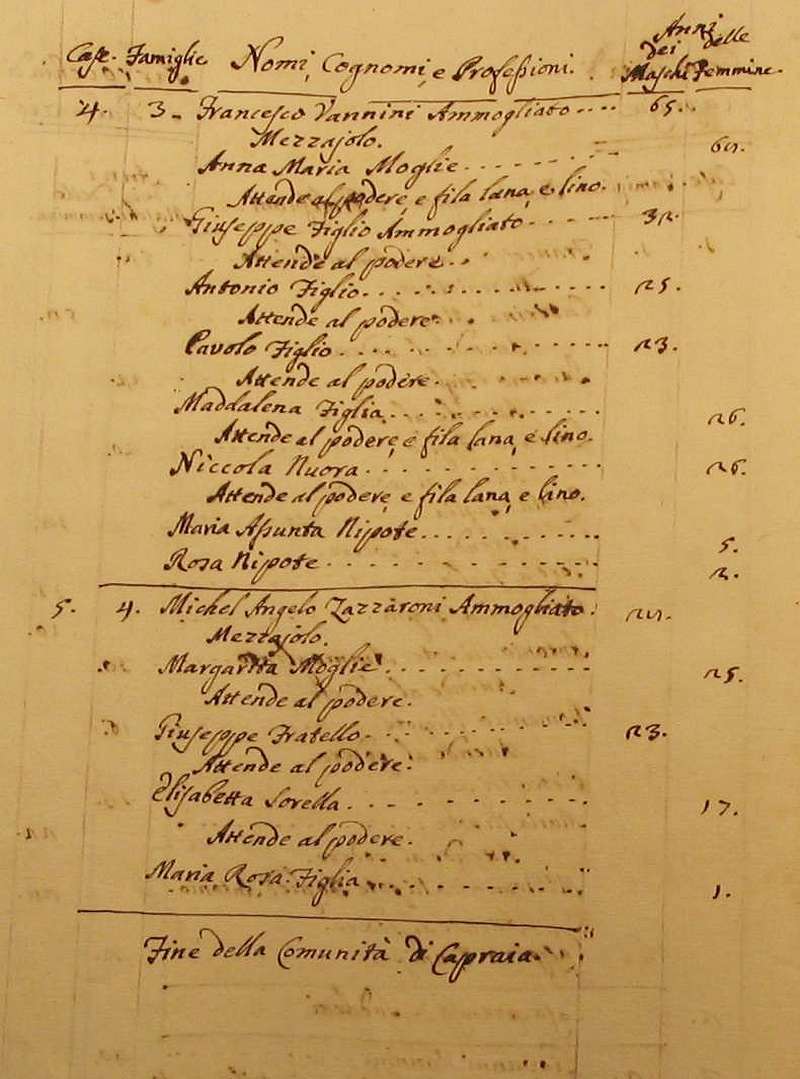 Case. Famiglie. Nomi, Cognomi, e Professioni. Anni dei Maschi delle Femmine.
4. 3. Francesco Vannini Ammogliato .... 65.
Mezzajolo.
Anna Maria Moglie
Attende al podere e fila lana, e lino.
Giuseppe Figlio Ammogliato ..... 32.
Attende al podere.
Antonio Figlio. 25.
Attende al podere.
Pavolo Figlio. 23.
Attende al podere.
Maddalena Figlia. 26.
Attende al podere, e fila lana, e lino.
Niccola Nuora. 26.
Attende al podere, e fila lana, e lino.
Maria Assunta Nipote. 5.
Rosa Nipote 2.
5. 4. Michel Angelo Zazzaroni Ammogliato.
Mezzajolo.
Margarita Moglie. 25.
Attende al podere.
Giuseppe Fratello. 23.
Attende al podere.
Elisabetta Sorella. 17.
Attende al podere.
Maria Rosa Figlia 1.
Fine della Comunità di Capraia.